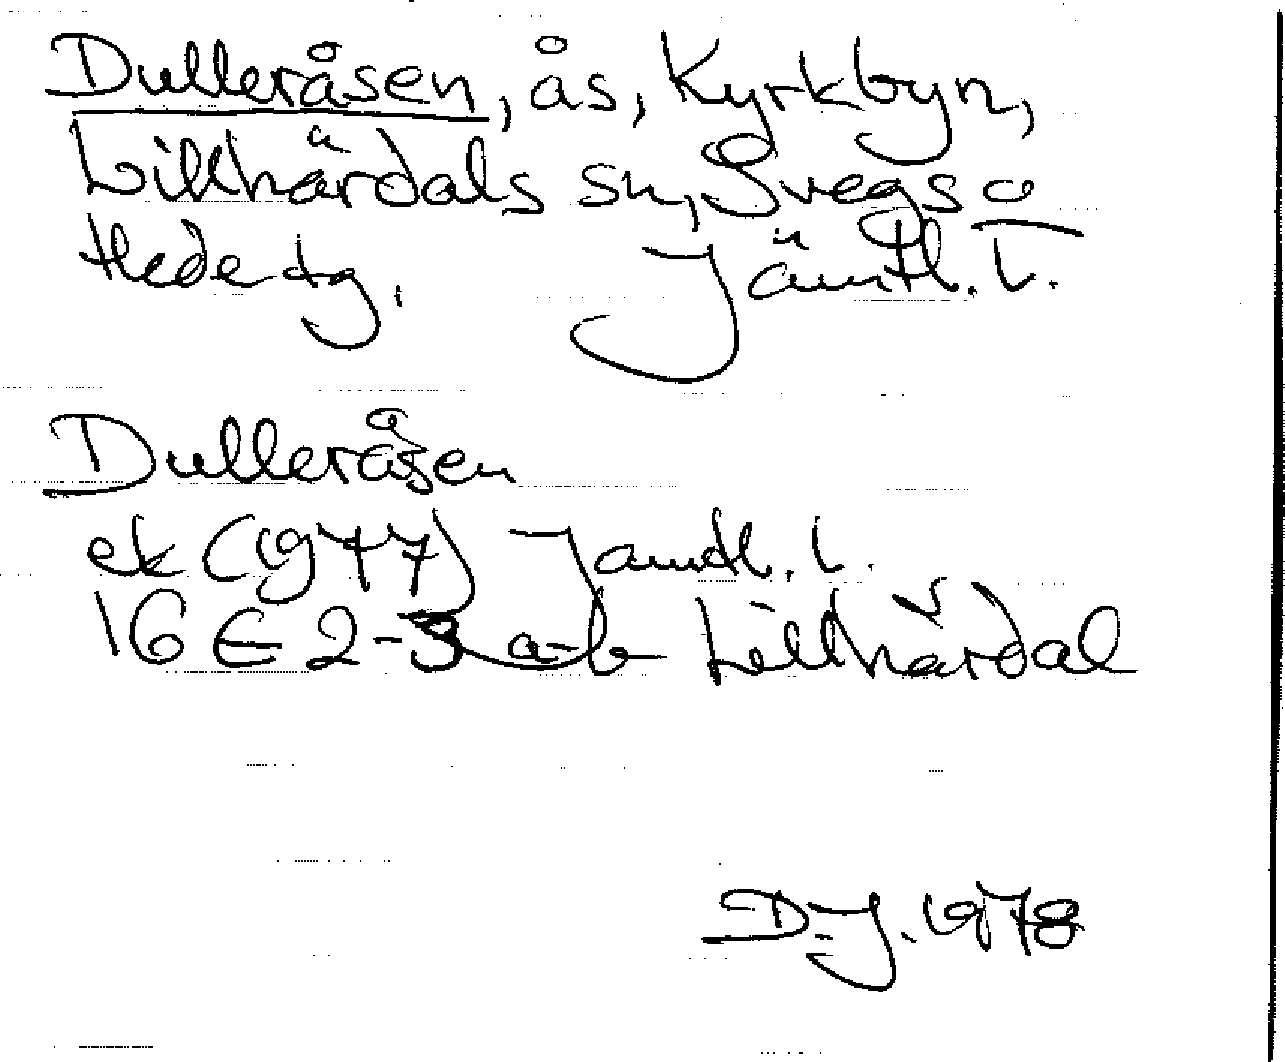 Dulleråsen, ås, Kyrkbyn,
Lillhärdals sn, Svegs o
Hede tg. Jämtl. l.
Dulleråsen
ek (1977) Jämtl. l.
16 E 2-3 a-b Lillhärdal
D.J. 1978